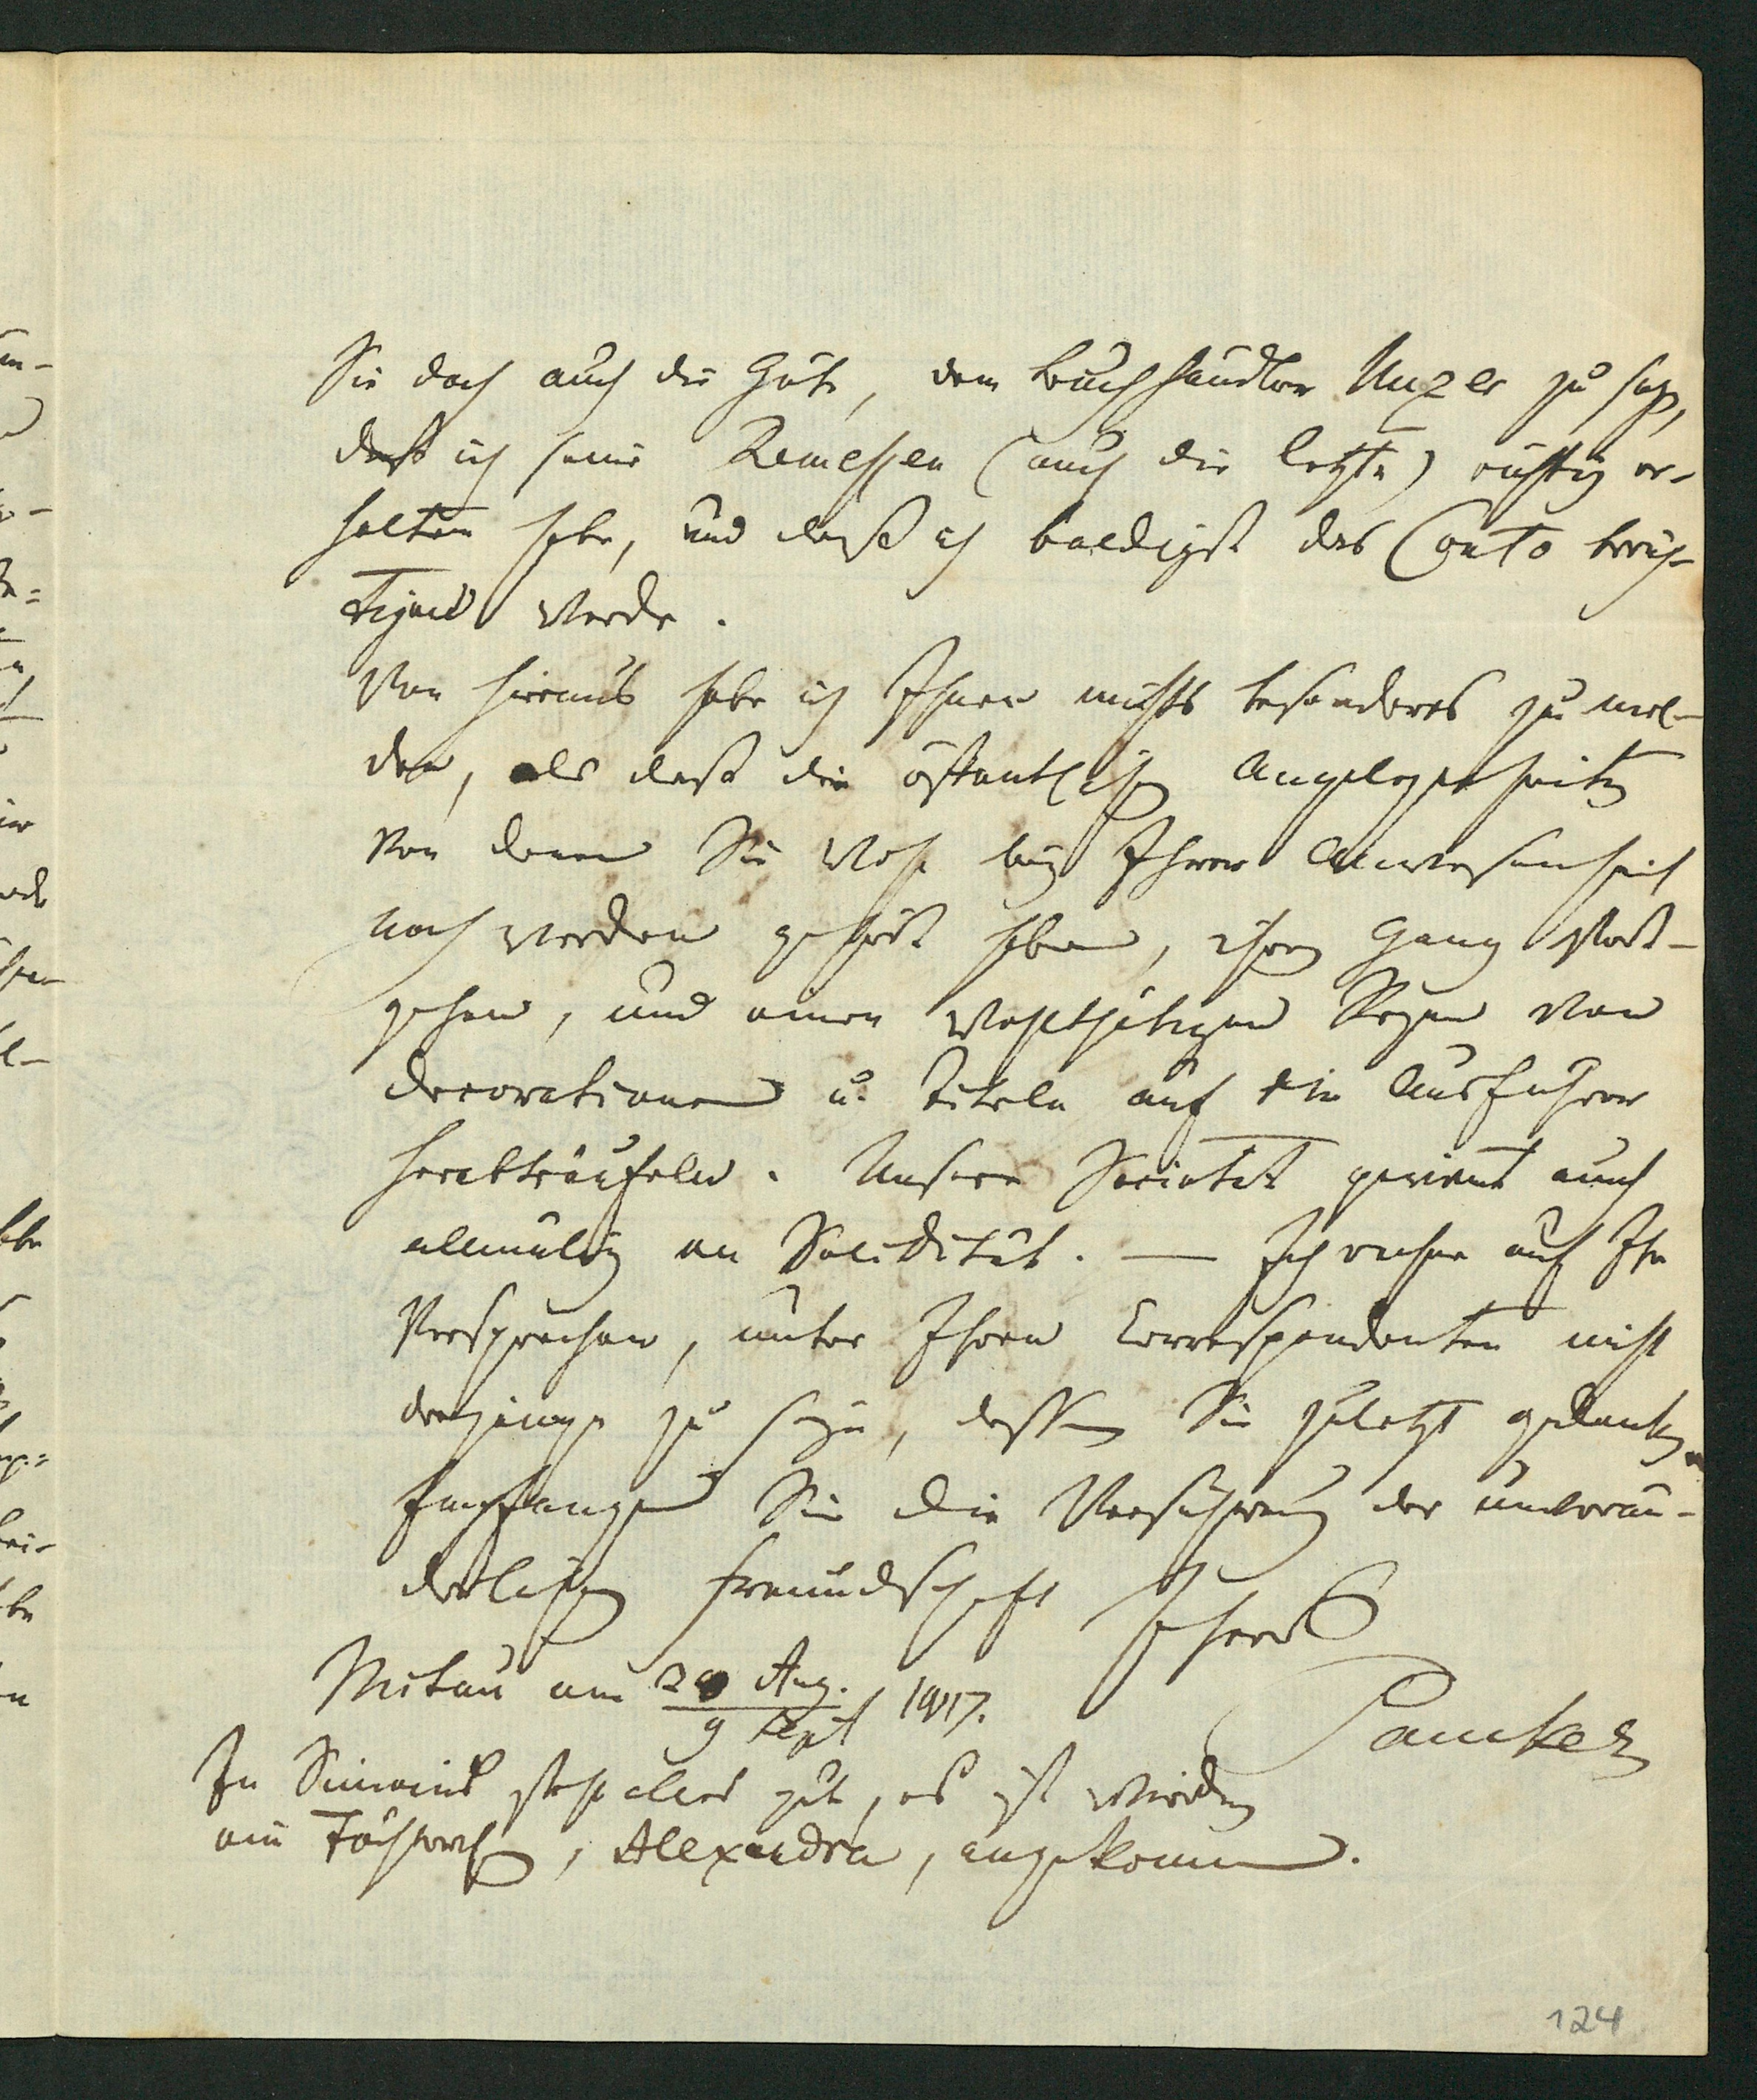 Sie doch auch die Güte, dem Buchhändler Unzer zu sagen,
daß ich seine Remessen (auch die letzte) richtig er-
halten habe, und daß ich baldigst das Conto berich-
tigen werde.
Von hieraus habe ich Ihnen nichts besonderes zu mel-
den, als daß die öffentlichen Angelegenheiten
von denen Sie wohl bey Ihrer Anwesenheit
noch werden gehört haben, ihren Gang fort-
gehen, und einen wohlthätigen Regen von
Decorationen u. Titeln auf die Ausführer
herabträufeln. Unsere Societät gewinnt auch
allmälig an Solidität. — Ich rechne auf Ihr
Versprechen, unter Ihren Correspondenten nicht
derjenige zu seyn, dessen Sie zuletzt gedenken.
Empfangen Sie die Versicherung der unverän-
derlichen Freundschaft Ihres
Mitau am 28 Aug. / 9 Sept 1817.
Paucker
In steht alles gut, es ist wieder
ein Töchterchen, Alexandra, angekommen.
124